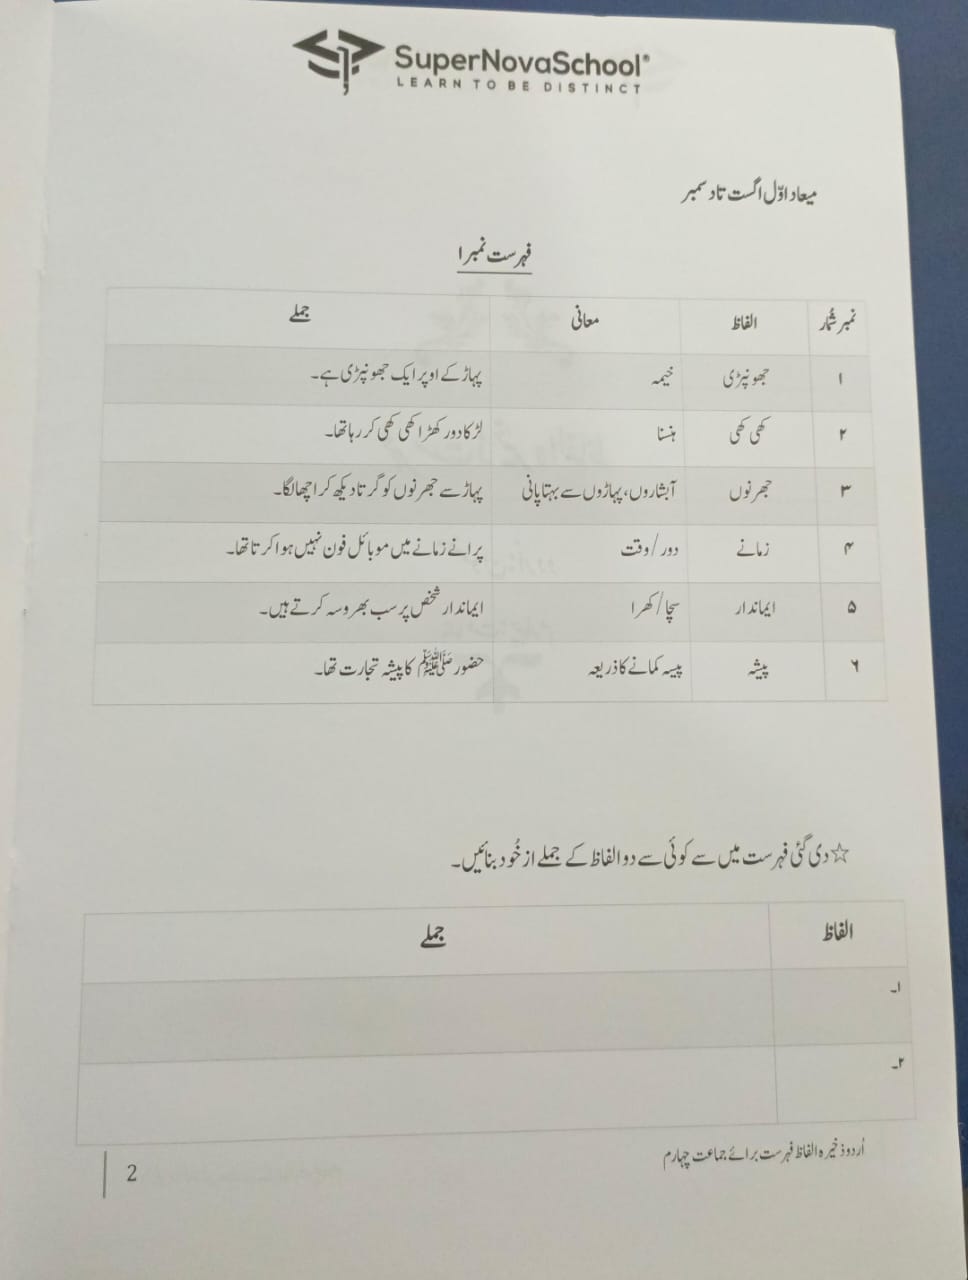 SuperNovaSchool®
LEARN TO BE DISTINCT
میعاد اوّل اگست تا دسمبر
فہرست نمبر ۱
نمبر شُمار الفاظ معانی جملے
۱ جھونپڑی خیمہ پہاڑ کے اوپر ایک جھونپڑی ہے۔
۲ کھی کھی ہنسنا لڑکا دور کھڑا کھی کھی کر رہا تھا۔
۳ جھرنوں آبشاروں، پہاڑوں سے بہتا پانی پہاڑ سے جھرنوں کو گرتا دیکھ کر اچھا لگا۔
۴ زمانے دور/وقت پرانے زمانے میں موبائل فون نہیں ہوا کرتا تھا۔
۵ ایماندار سچا/کھرا ایماندار شخص پر سب بھروسہ کرتے ہیں۔
۶ پیشہ پیسہ کمانے کا ذریعہ حضور ﷺ کا پیشہ تجارت تھا۔
☆دی گئی فہرست میں سے کوئی سے دو الفاظ کے جملے از خُود بنائیں۔
الفاظ جملے
۱۔
۲۔
اُردو ذخیرہ الفاظ فہرست برائے جماعت چہارم
2